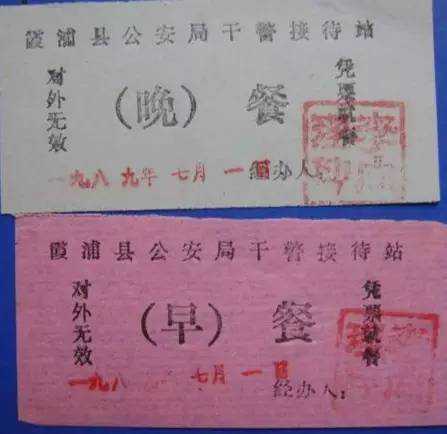 霞浦县公安局干警接待站
对外无效
（晚）餐
凭票就餐
一九八九年七月一日
经办人：
霞浦县公安局干警接待站
对外无效
（早）餐
凭票就餐
一九八 七月一日
经办人：